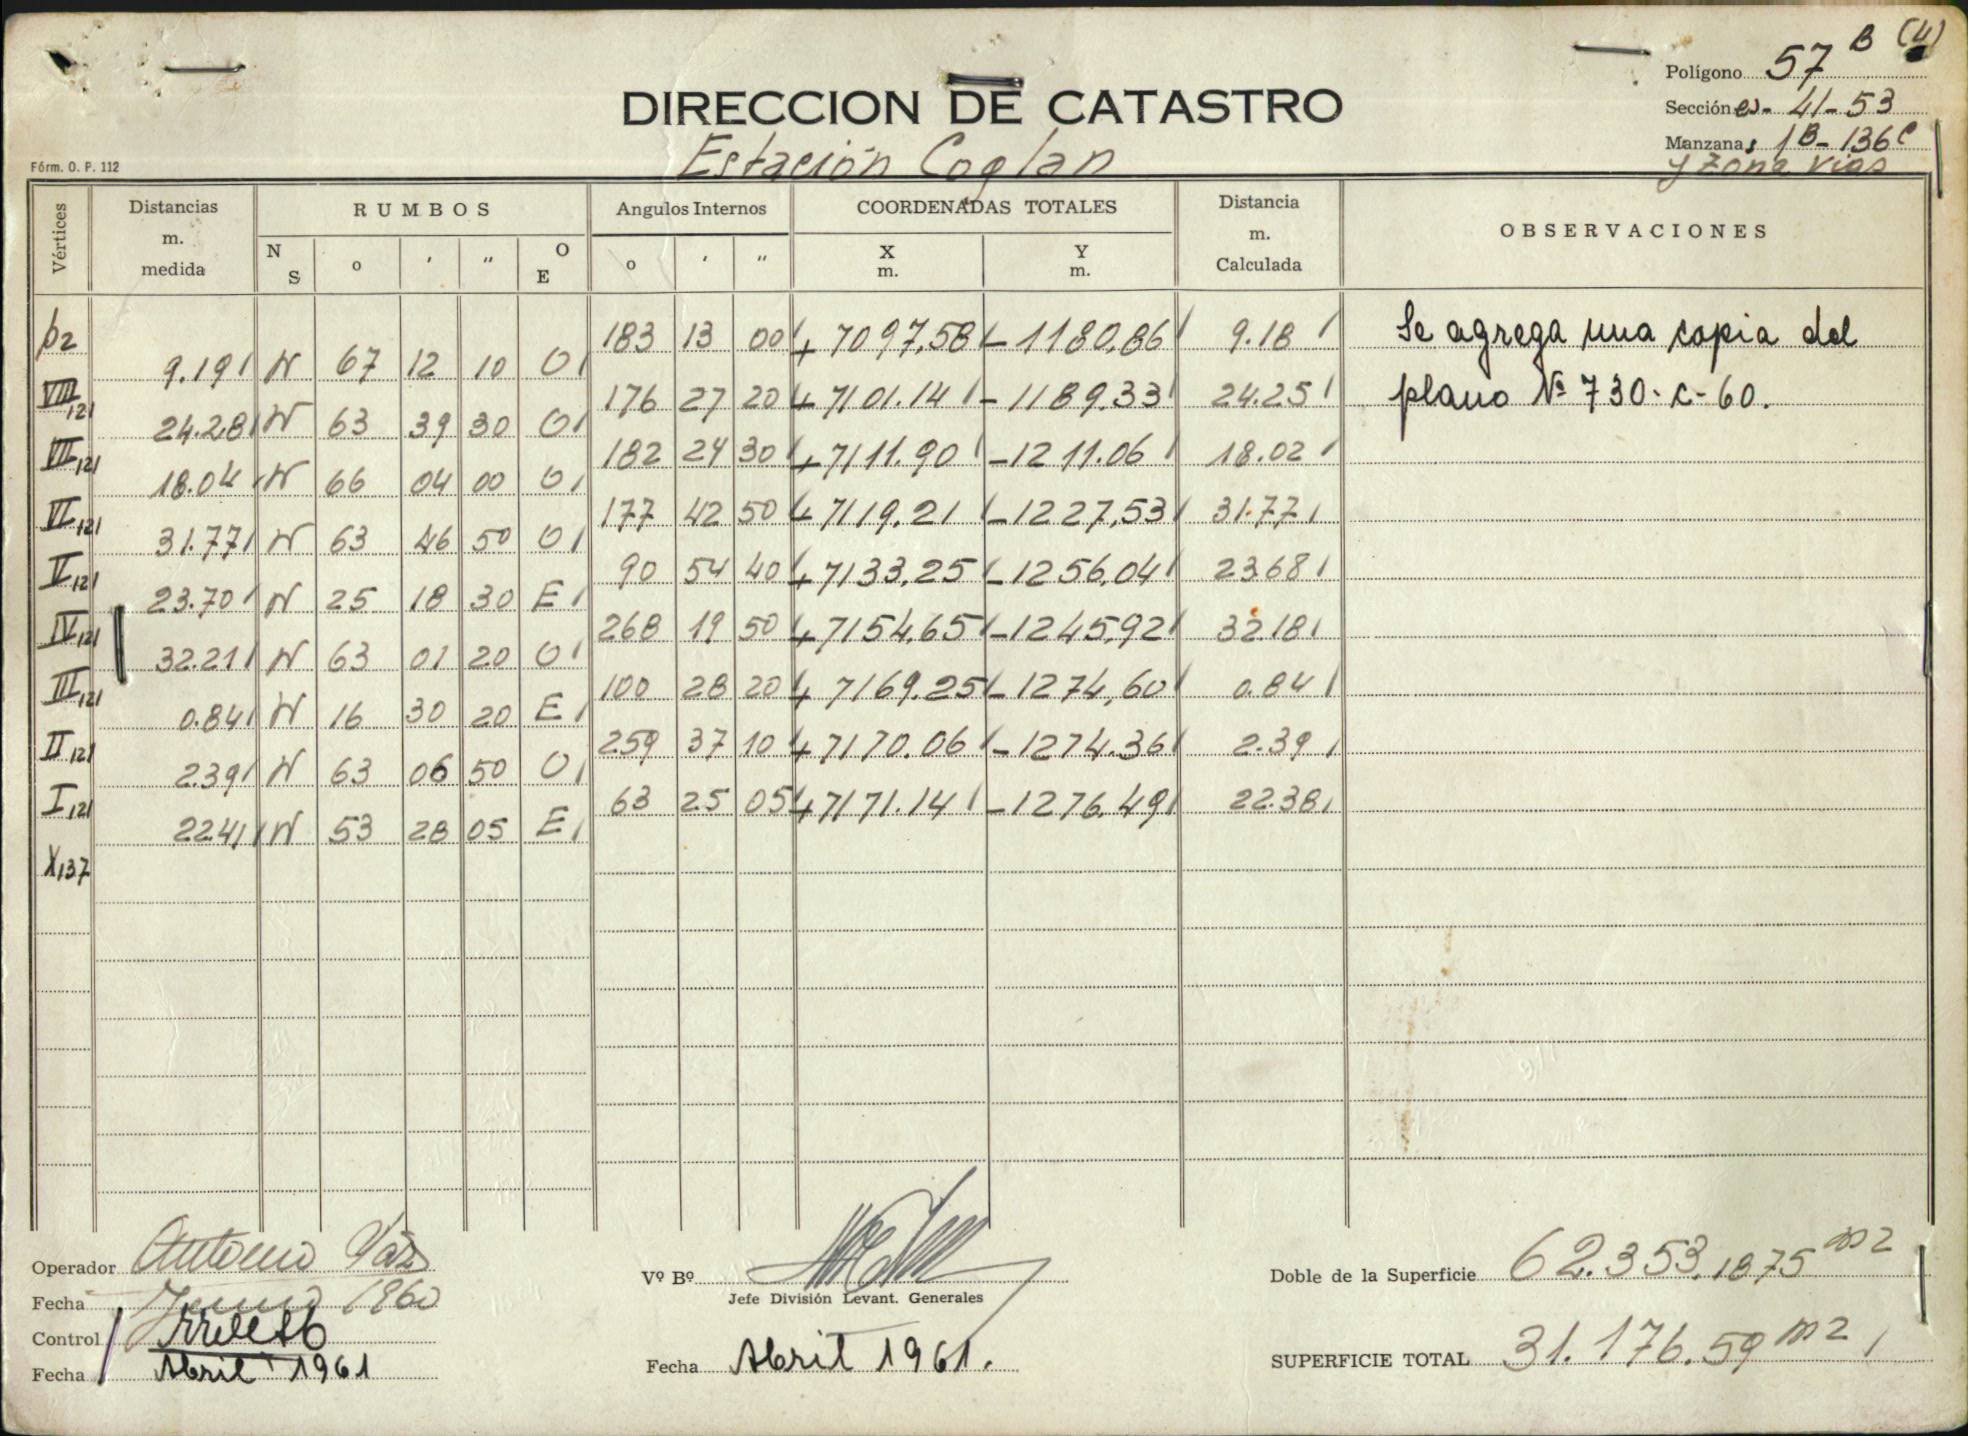 57 B (4)
Polígono
DIRECCION DE CATASTRO
Sección es- 41-53
Estación Coglan
Manzanas 1B-136C
y Zona vias
Fórm. O. P. 112
Vértices Distancias m. medida RUMBOS Angulos Internos COORDENADAS TOTALES Distancia m. Calculada OBSERVACIONES
N S o ' " O E o ' " X m. Y m.
p2 183 13 00 + 7097,58 - 1180,86 9.18 Se agrega una copia del
9.19 N 67 12 10 O
VIII121 176 27 20 + 7101.14 - 1189.33 24.25 plano Nº 730-C-60.
24.28 N 63 39 30 O
VII121 182 24 30 + 7111.90 - 1211.06 18.02
18.04 N 66 04 00 O
VI121 177 42 50 + 7119,21 - 1227,53 31.77
31.77 N 63 46 50 O
V121 90 54 40 + 7133,25 - 1256,04 23.68
23.70 N 25 18 30 E
IV121 268 19 50 + 7154,65 - 1245,92 32.18
32.21 N 63 01 20 O
III121 100 28 20 + 7169.25 - 1274,60 0.84
0.84 N 16 30 20 E
II121 259 37 10 + 7170.06 - 1274.36 2.39
2.39 N 63 06 50 O
I121 63 25 05 + 7171.14 - 1276.49 22.38
22.41 N 53 28 05 E
X137
Operador Antonio Váz
Vº Bº
Jefe División Levant. Generales
Doble de la Superficie 62.353,1875 m2
Fecha Junio 1960
Control
Fecha Abril 1961
Fecha Abril 1961.
SUPERFICIE TOTAL 31.176.59 m2